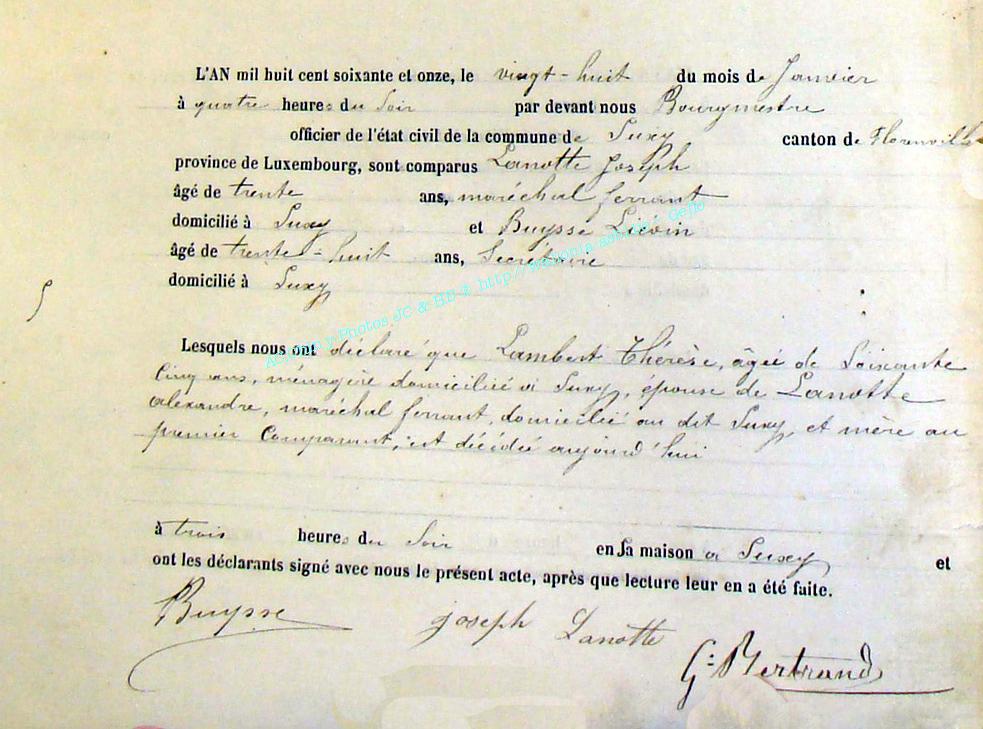 L'AN mil huit cent soixante et onze, le vingt-huit du mois de Janvier
à quatre heures du Soir par devant nous Bourgmestre
officier de l'état civil de la commune de Suxy canton de Florenville
province de Luxembourg, sont comparus Lanotte Joseph
âgé de trente ans, maréchal ferrant
domicilié à Suxy et Buysse Liévin
âgé de trente-huit ans, Secrétaire
domicilié à Suxy
Lesquels nous ont déclaré que Lambert Thérèse, âgée de Soixante
Cinq ans, ménagère domiciliée à Suxy, épouse de Lanotte
alexandre, maréchal ferrant, domicilié au dit Suxy, et mère au
premier Comparant, est décédée aujourd'hui
à trois heures du Soir en Sa maison à Suxy et
ont les déclarants signé avec nous le présent acte, après que lecture leur en a été faite.
Buysse Joseph Lanotte
G: Bertrand
Photos JC & HB © http://wallonia-asbl